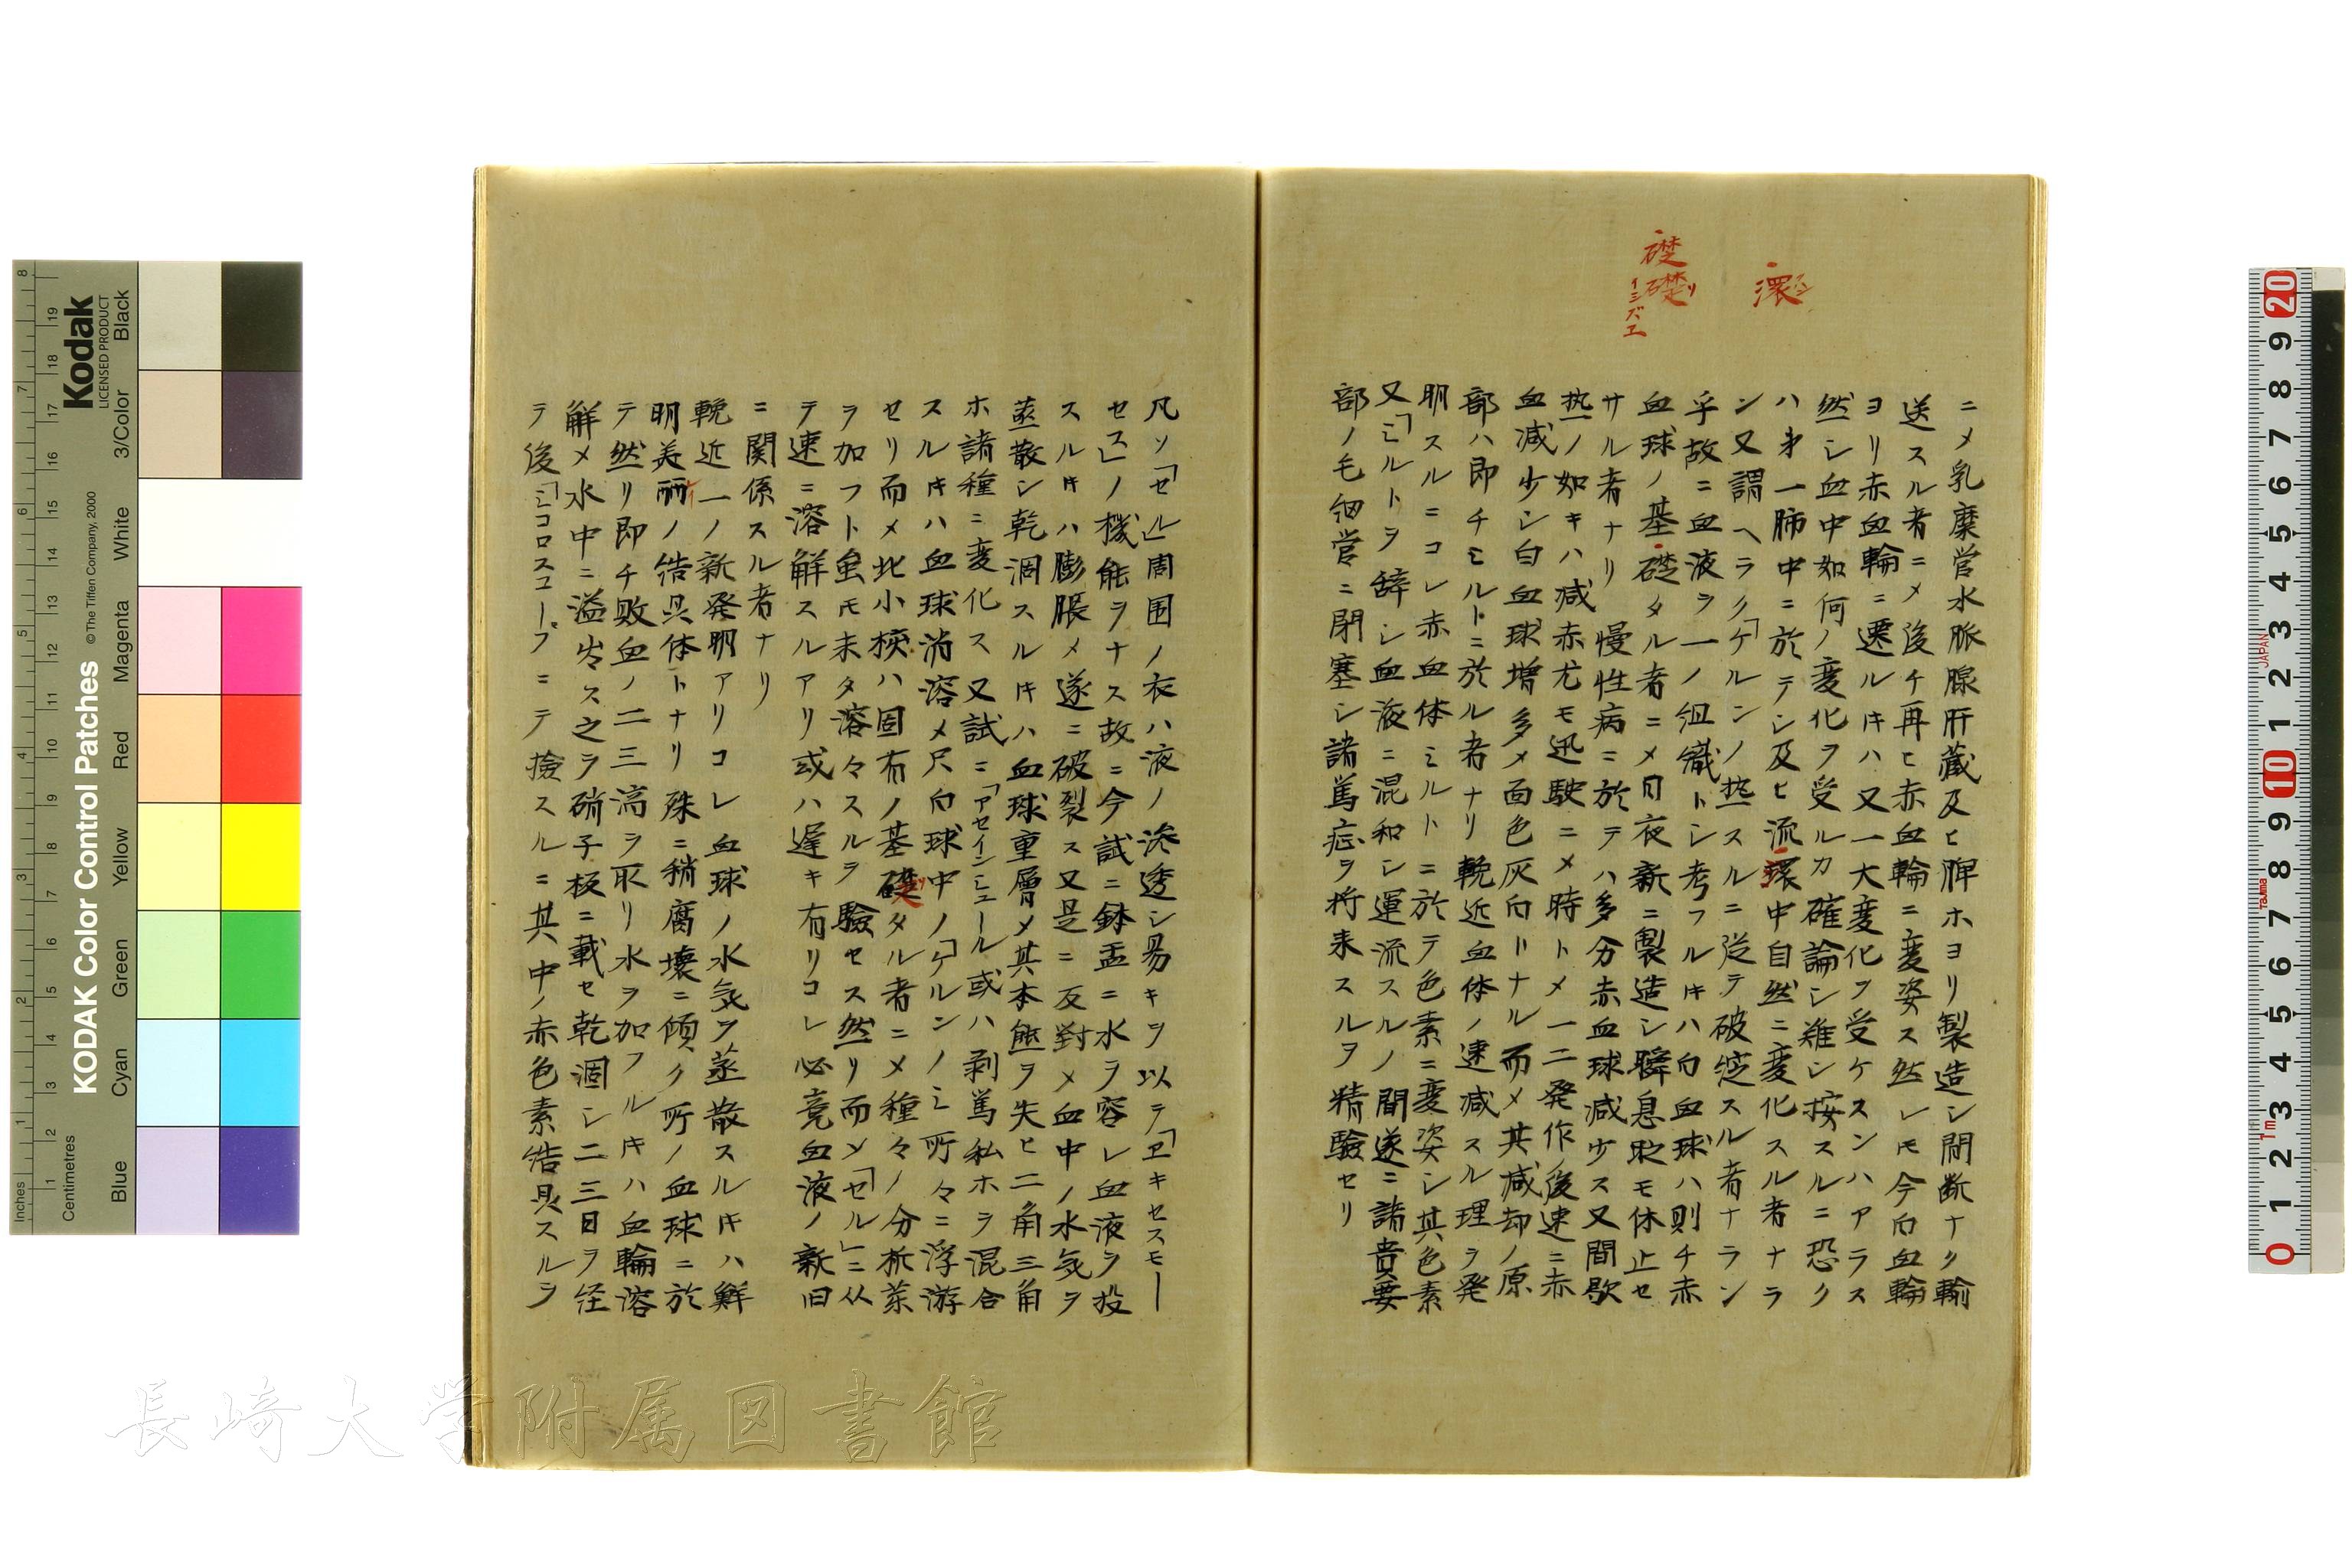 環
礎
礎
イシズエ
ニメ乳糜営水脈腺肝蔵及ヒ脾ホヨリ製造シ間断ナク輸
送スル者ニメ後チ再ヒ赤血輪ニ変姿ス然レ𪜈今白血輪
ヨリ赤血輪ニ遷ルキハ又一大変化ヲ受ケスンハアラス
然シ血中如何ノ変化ヲ受ルカ確論シ難シ按スルニ恐ク
ハ第一肺中ニ於テシ及ヒ流環中自然ニ変化スル者ナラ
ン又謂ヘラク「ケルンノ熱スルニ従テ破綻スル者ナラン
乎故ニ血液ヲ一ノ組織トシ考フルキハ白血球ハ則チ赤
血球ノ基礎タル者ニメ日夜新ニ製造シ瞬息㫖モ休止セ
サル者ナリ 慢性病ニ於テハ多分赤血球減少ス又間歇
熱ノ如キハ減赤尤モ迅駛ニメ時トメ一二発作ノ後速ニ赤
血減少シ白血球増多メ面色灰白トナル而メ其減却ノ原
部ハ即チミルトニ於ル者ナリ輓近血体ノ速減スル理ヲ発
明スルニコレ赤血体ミルトニ於テ色素ニ変姿シ其色素
又「ミルトヲ辞シ血液ニ混和シ運流スルノ間遂ニ諸貴要
部ノ毛細営ニ閉塞シ諸篤症ヲ将来スルヲ精験セリ
凡ソ「セル」周囲ノ衣ハ液ノ滲透シ易キヲ以テ「ヱキセスモー
セス」ノ機能ヲナス故ニ今試ニ鉢盂ニ水ヲ容レ血液ヲ投
スルキハ膨脹メ遂ニ破裂ス又是ニ反対メ血中ノ水気ヲ
蒸散シ乾涸スルキハ血球重層メ其本態ヲ失ヒ二角三角
ホ諸種ニ変化ス又試ニ「アセインシュール或ハ剥篤私ホヲ混合
スルキハ血球消溶メ只白球中ノ「ケルンノミ所々ニ浮游
セリ而メ此小核ハ固有ノ基礎タル者ニメ種々ノ分析薬
ヲ加フト虽モ未タ溶々スルヲ験セス然リ而メ「セル」ニ从
テ速ニ溶解スルアリ或ハ遅キ有リコレ必竟血液ノ新旧
ニ関係スル者ナリ
輓近一ノ新発明アリコレ血球ノ水気ヲ蒸散スルキハ鮮
明美麗ノ結晶体トナリ殊ニ稍腐壊ニ傾ク所ノ血球ニ於
テ然リ即チ敗血ノ二三滴ヲ取リ水ヲ加フルキハ血輪溶
解メ水中ニ溢出ス之ヲ硝子板ニ載セ乾涸シ二三日ヲ経
テ後「ミコロスコープニテ撿スルニ其中ノ赤色素結晶スルヲ
長崎大学附属図書館
Kodak
LICENSED PRODUCT
KODAK Color Control Patches
© The Tiffen Company, 2000
Inches
Centimetres
Blue
Cyan
Green
Yellow
Red
Magenta
White
3/Color
Black
JAPAN
Tajima